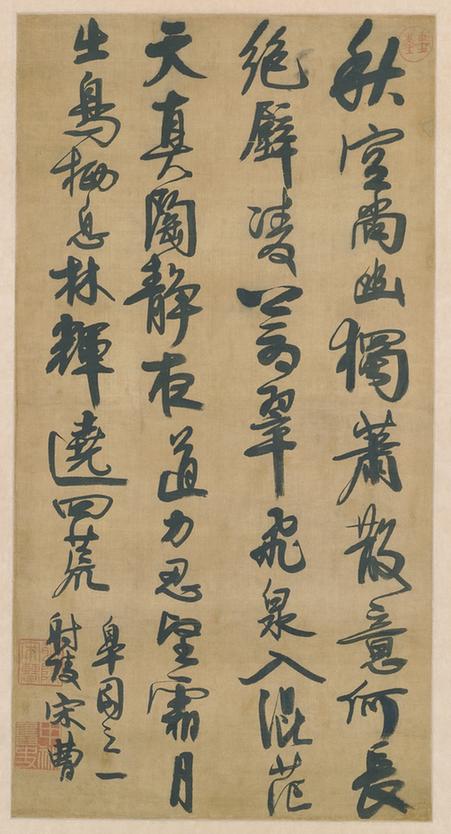 秋空尚幽獨蕭散意何長
絕壁凌蒼翠飛泉入混茫
天真陶靜道力忍霜月
出鳥栖息林輝遶四荒
皐園之一
射陵宋曹